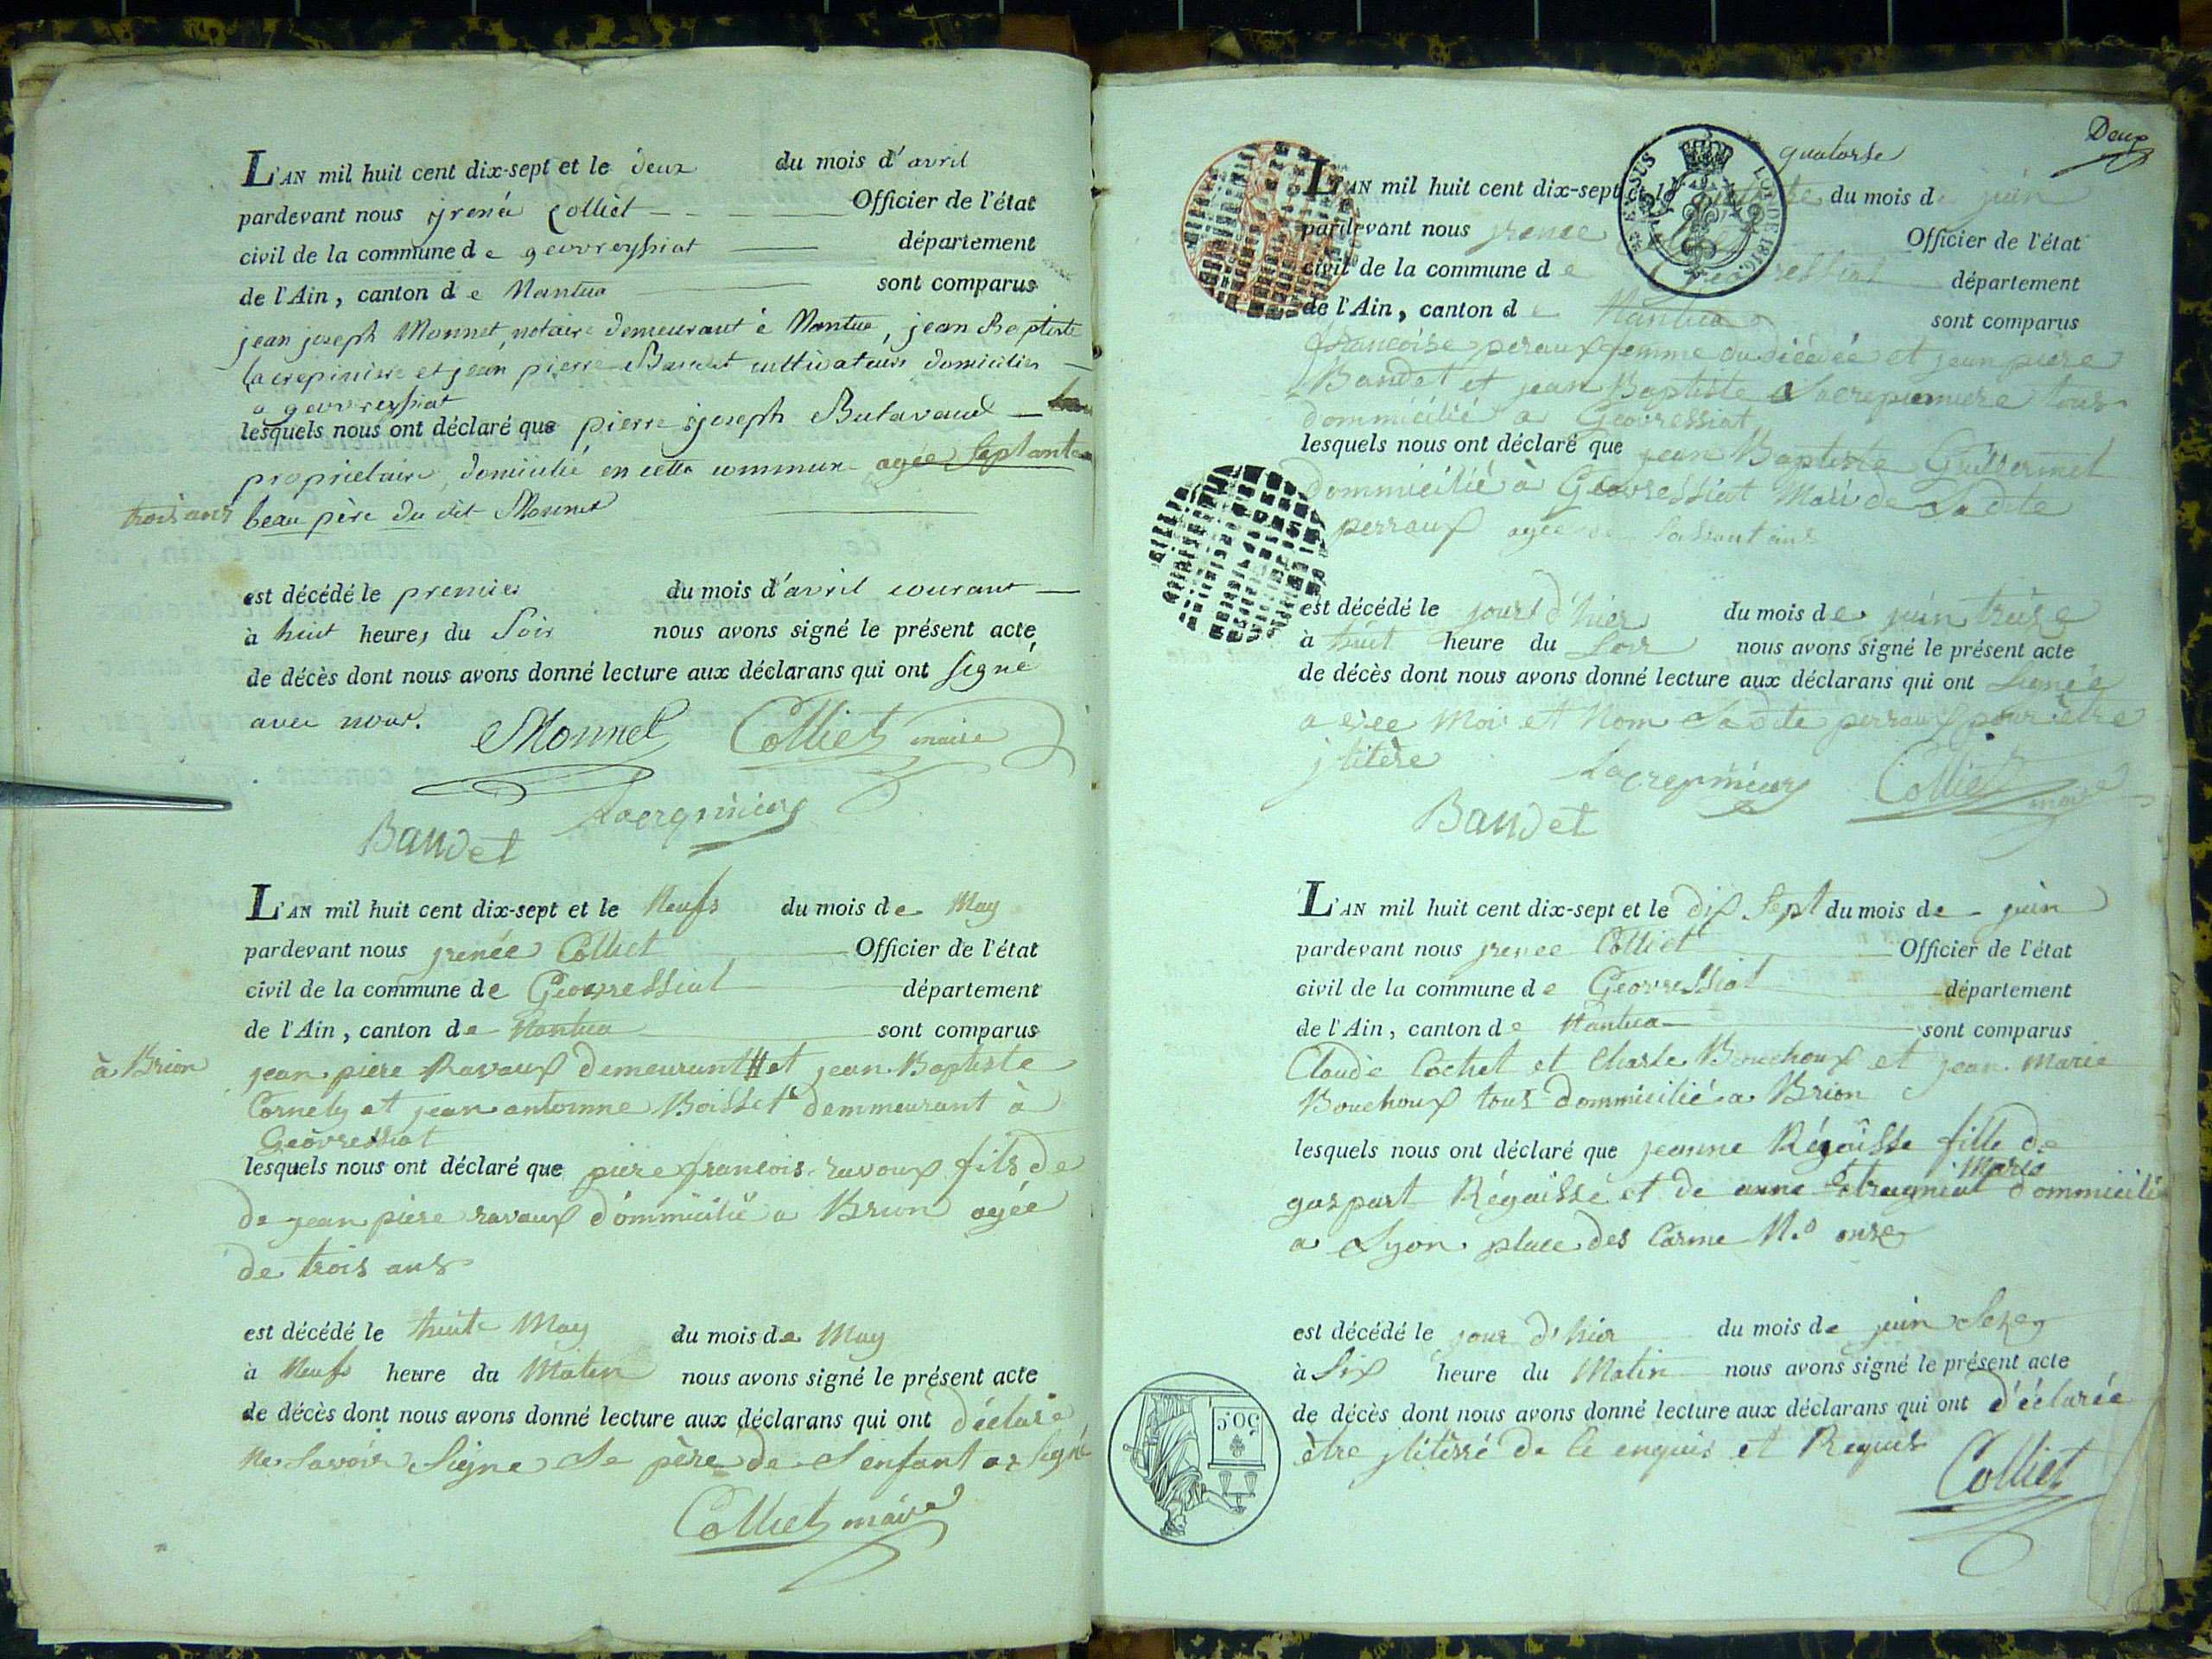 L'AN mil huit cent dix-sept et le deux du mois d'avril
pardevant nous jrené Colliet Officier de l'état
civil de la commune de geovreyssiat département
de l'Ain, canton de Nantua sont comparus
jean joseph Monnet, notaire demeurant à Nantua, jean Baptiste
Lacrepiniere et jean pierre Baudet cultivateurs domiciliés
a geovreyssiat
lesquels nous ont déclaré que pierre joseph Butavand
proprietaire, domicilié en cette commune agée Septante
trois ans beau père du dit Monnet
est décédé le premier du mois d'avril courant
à huit heures du Soir nous avons signé le présent acte
de décès dont nous avons donné lecture aux déclarans qui ont signé
avec nous. Monnet Colliet maire
Baudet Lacrepiniere
L'AN mil huit cent dix-sept et le Neufs du mois de May
pardevant nous jrenée Colliet Officier de l'état
civil de la commune de Geovressiat département
de l'Ain, canton de Nantua sont comparus
à Brion jean piere Ravaux demeurant # et jean Baptiste
Cornely et jean antoinne Boisset demmeurant à
Geovressiat
lesquels nous ont déclaré que piere francois ravoux fils de
de jean piere ravaux dommicilié a Brion agée
de trois ans
est décédé le huite May du mois de May
à Neufs heure du Maten nous avons signé le présent acte
de décès dont nous avons donné lecture aux déclarans qui ont déclaré
ne Savoir Signe Le père de L'enfant a Signé
Colliet maire
Deux
quatorse
L'AN mil huit cent dix-sept et le du mois de juin
pardevant nous jrenee Officier de l'état
civil de la commune de département
de l'Ain, canton de Nantua sont comparus
francoise peraux femme du décédé et jean piere
Baudet et jean Baptiste Lacrepiniere tous
dommicilié a Geovressiat
lesquels nous ont déclaré que jean Baptiste Guillermet
dommicilié à Geovressiat Mari de Ladite
perraux agée de Soissant ans
est décédé le jours d'hier du mois de juin treise
à huit heure du Soir nous avons signé le présent acte
de décès dont nous avons donné lecture aux déclarans qui ont Signée
avee Moi et Nom Ladite perraux pour être
jlitère Lacrepiniere Colliet maire
Baudet
L'AN mil huit cent dix-sept et le dix Sept du mois de juin
pardevant nous jrenee Colliet Officier de l'état
civil de la commune de Geovressiat département
de l'Ain, canton de Nantua sont comparus
Claude Cochet et Charle Bouchoux et jean Marie
Bouchoux tous dommicilié a Brion
lesquels nous ont déclaré que jeanne Régaisse fille de
gaspart Régaissé et de anne Marie dommicilié
a Lyon place des Carme N.o onze
est décédé le jour d'hier du mois de juin Seze
à Six heure du Matin nous avons signé le présent acte
de décès dont nous avons donné lecture aux déclarans qui ont déclarée
être jlitèrré de le enquis et Requis
Colliet
50.C